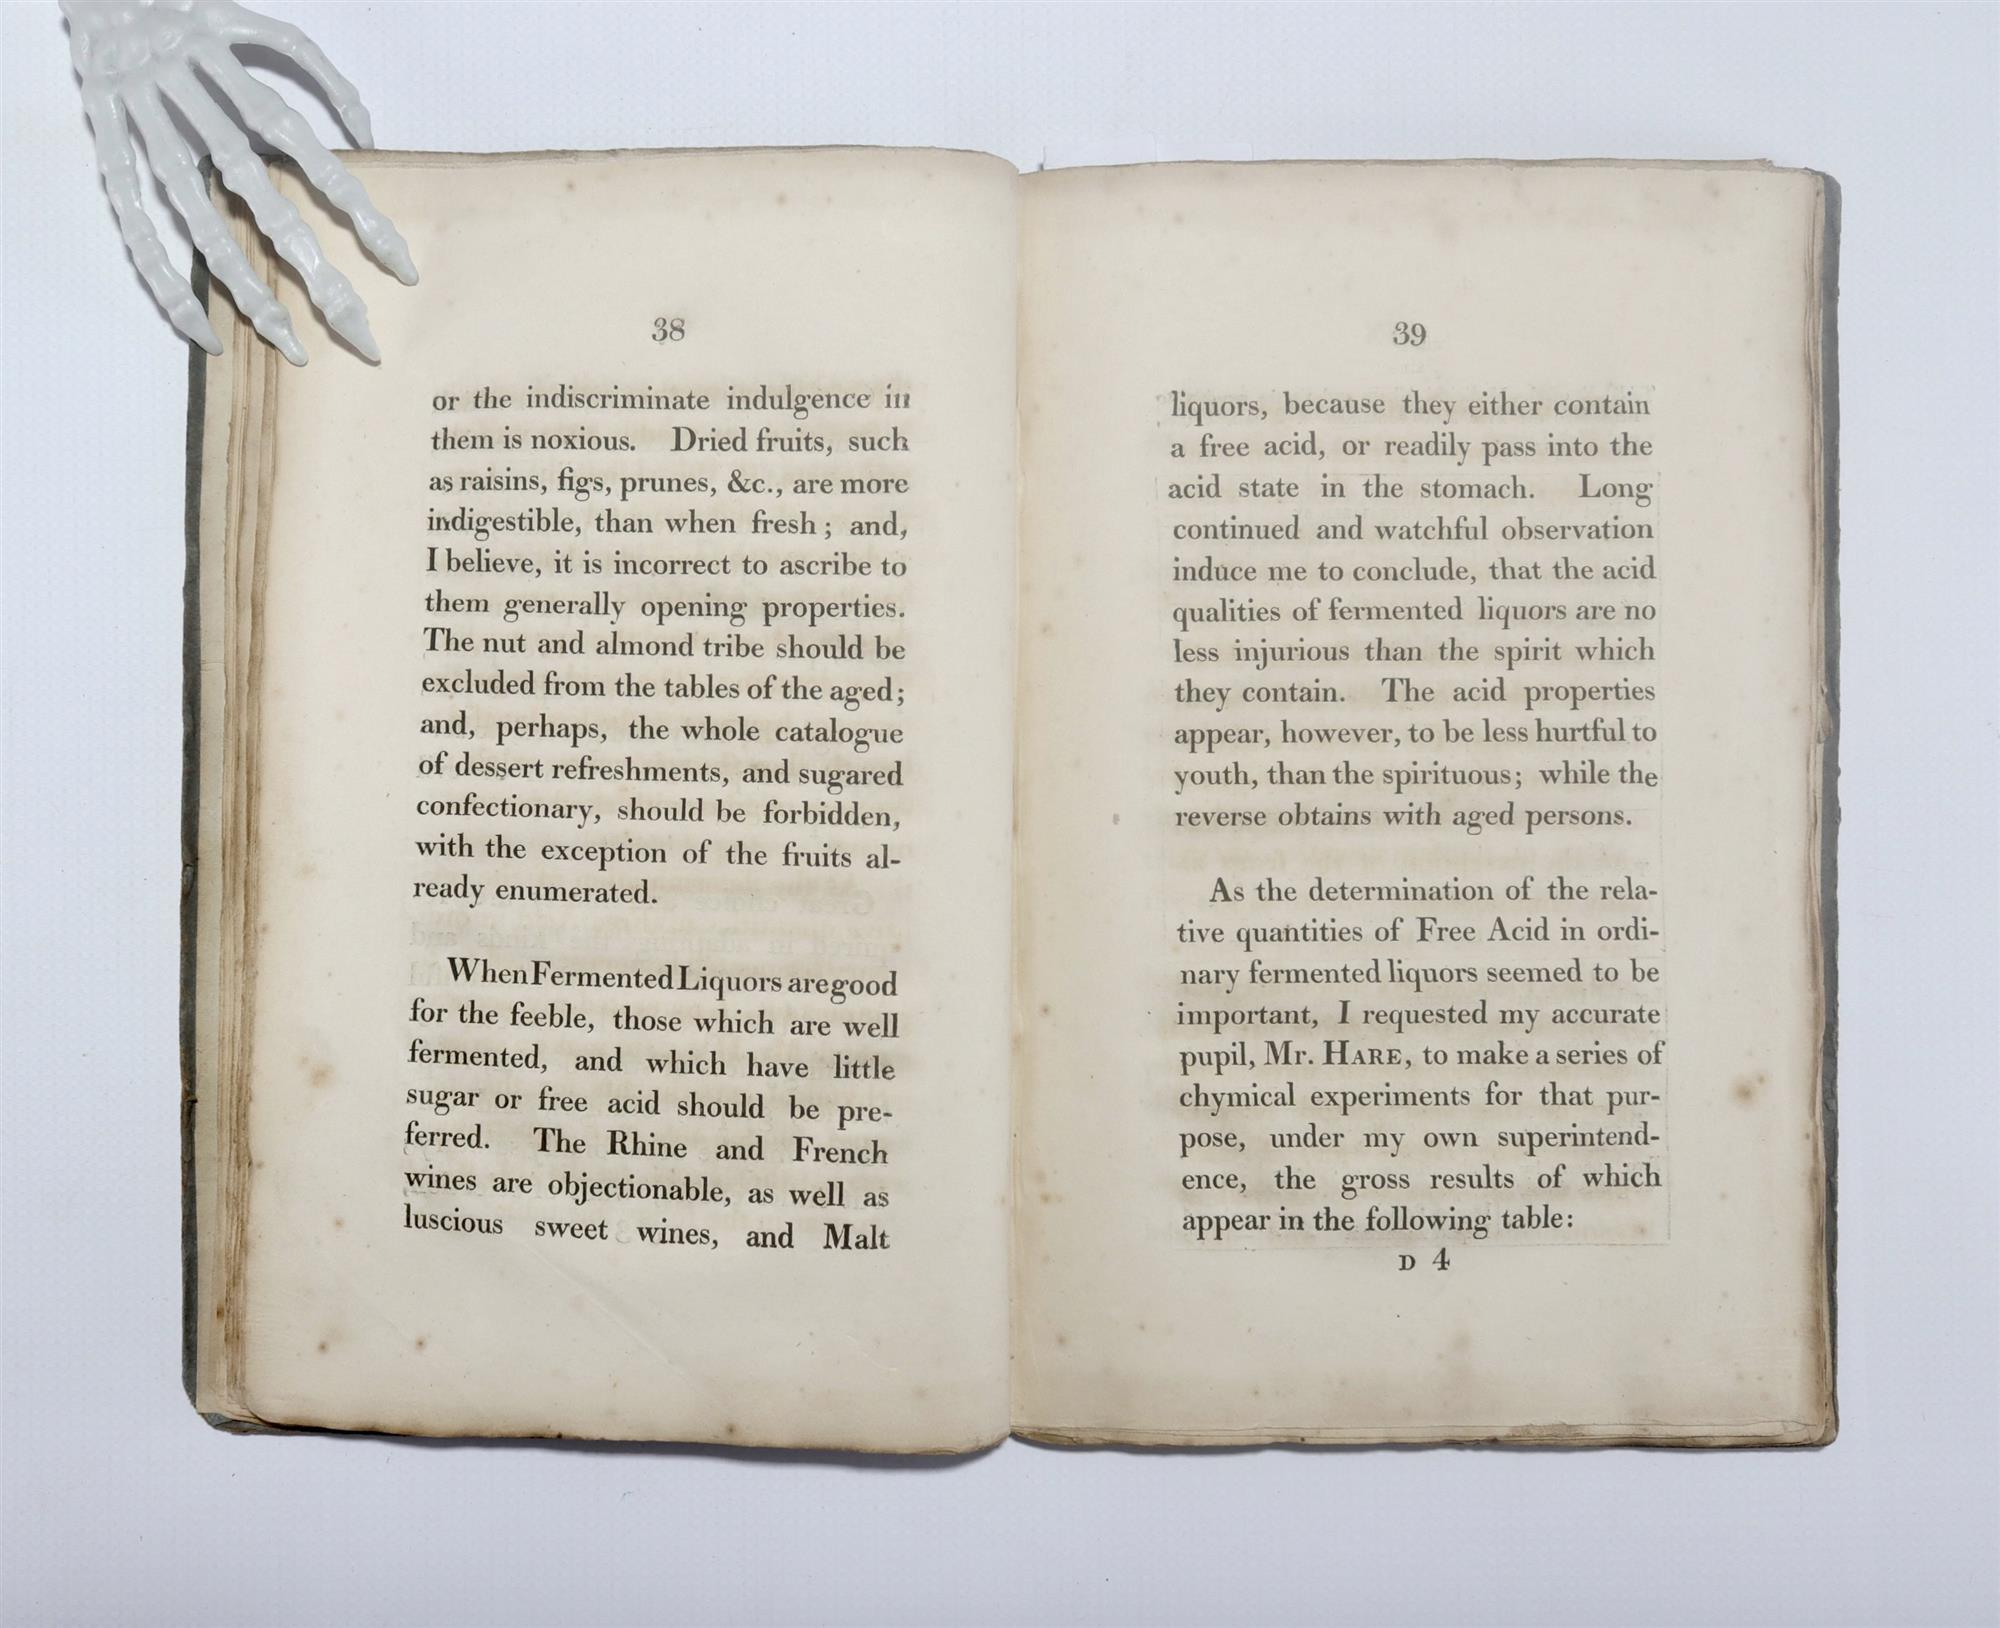 38
or the indiscriminate indulgence in
them is noxious. Dried fruits, such
as raisins, figs, prunes, &c., are more
indigestible, than when fresh; and,
I believe, it is incorrect to ascribe to
them generally opening properties.
The nut and almond tribe should be
excluded from the tables of the aged;
and, perhaps, the whole catalogue
of dessert refreshments, and sugared
confectionary, should be forbidden,
with the exception of the fruits al-
ready enumerated.
When Fermented Liquors are good
for the feeble, those which are well
fermented, and which have little
sugar or free acid should be pre-
ferred. The Rhine and French
wines are objectionable, as well as
luscious sweet wines, and Malt
39
liquors, because they either contain
a free acid, or readily pass into the
acid state in the stomach. Long
continued and watchful observation
induce me to conclude, that the acid
qualities of fermented liquors are no
less injurious than the spirit which
they contain. The acid properties
appear, however, to be less hurtful to
youth, than the spirituous; while the
reverse obtains with aged persons.
As the determination of the rela-
tive quantities of Free Acid in ordi-
nary fermented liquors seemed to be
important, I requested my accurate
pupil, Mr. HARE, to make a series of
chymical experiments for that pur-
pose, under my own superintend-
ence, the gross results of which
appear in the following table:
D 4